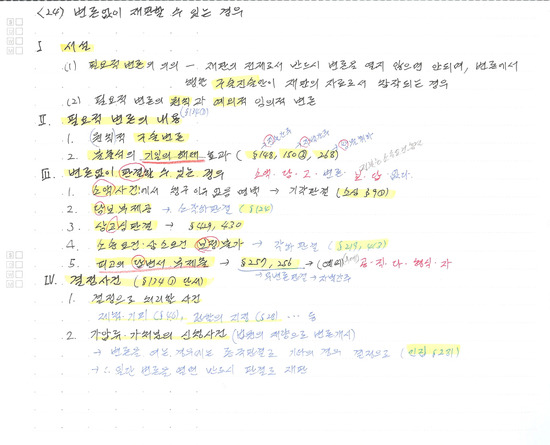 <24> 변론없이 재판할 수 있는 경우
Ⅰ 서설
(1) 필요적 변론의 의의 - 재판의 전제로서 반드시 변론을 열지 않으면 안되며, 변론에서
행한 구술진술만이 재판의 자료로서 참작되는 경우
(2) 필요적 변론의 원칙과 예외적 임의적 변론
Ⅱ. 필요적 변론의 내용 (§134①)
1. 원칙적 구술변론
2. 불출석의 기일의 해태 효과 (§148, 150③, 268)
Ⅲ. 변론없이 판결할 수 있는 경우 소액·담·고·변론·보·답·없다.
1. 소액사건에서 청구 이유 없음 명백 → 기각판결 (소심 §9①)
2. 담보 부제공 → 소각하판결 (§124)
3. 상고심판결 → §429, 430
4. 소송요건·상소요건 보정불가 → 각하판결 (§219, 413)
5. 피고의 답변서 부제출 → §257, 256 → (예외) 공·직·다·형식·자
→ 무변론판결 → 자백간주
Ⅳ. 결정사건 (§134① 단서)
1. 결정으로 처리할 사건
제척·기피 (§46), 관할의 지정 (§28) … 등
2. 가압류·가처분의 신청사건 (법원의 재량으로 변론개시)
→ 변론을 여는 경우이든 종국판결로 기타의 경우 결정으로 (민집 §281)
→ ∴ 일단 변론을 열면 반드시 판결로 재판